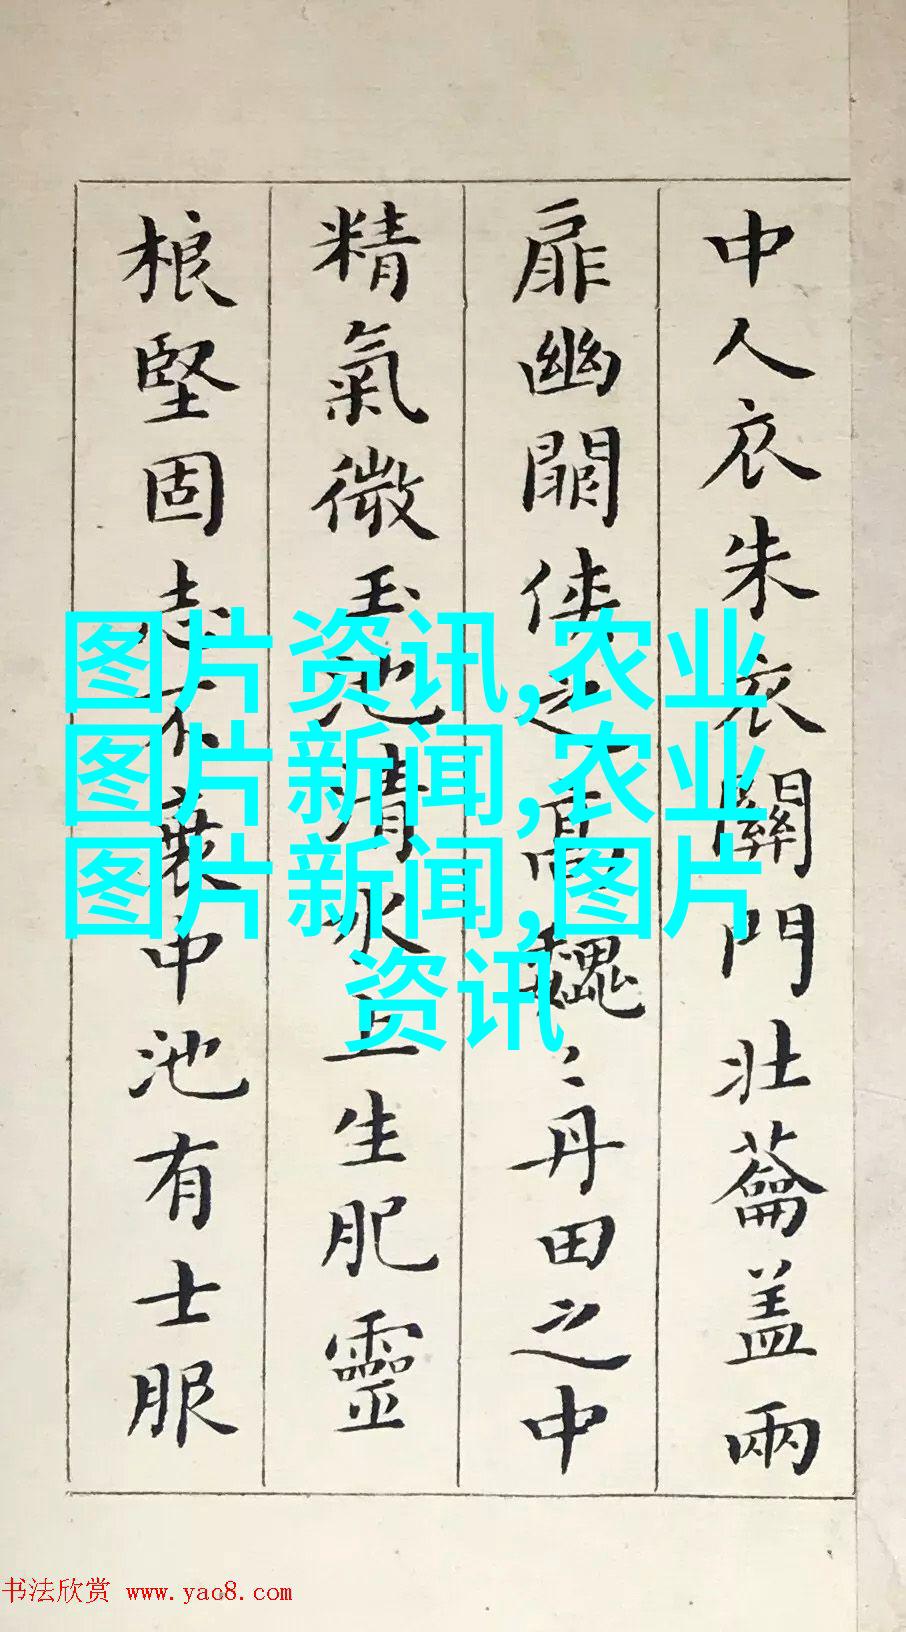 中人衣朱衣關門壯蘥盖兩
扉幽闗侠之高巍〻丹田之中
精氣微玉池清水上生肥靈
根堅固志不衰中池有士服
图片资讯,农业
图片新闻,农业
图片新闻,图片
资讯
书法欣赏 www.yac8.com